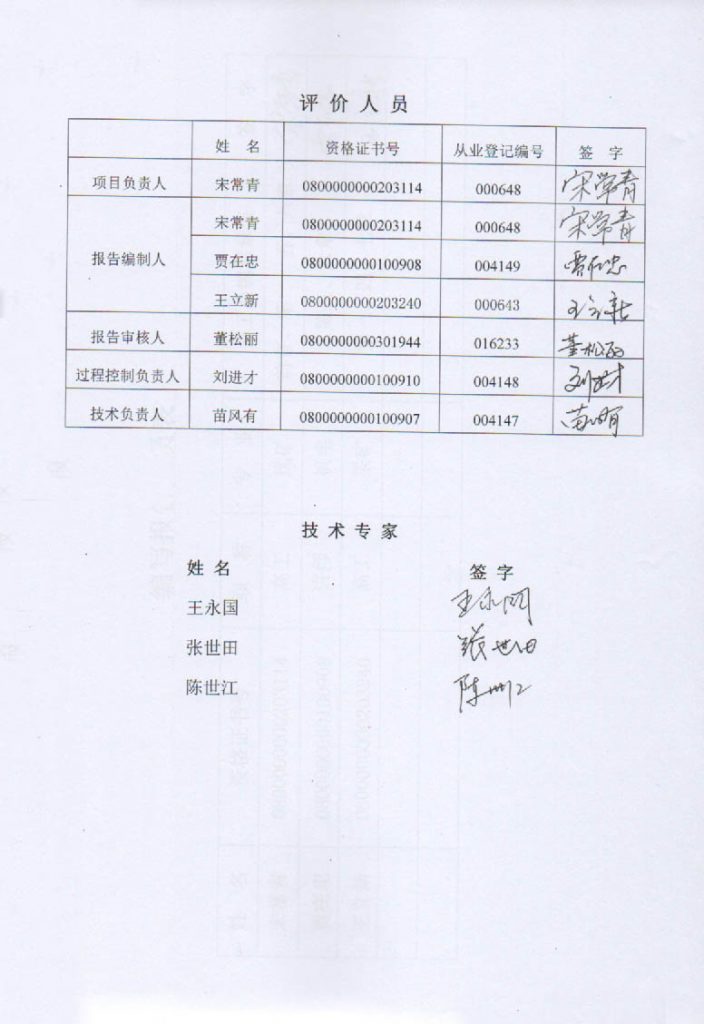 评 价 人 员
姓 名 资格证书号 从业登记编号 签 字
项目负责人 宋常青 0800000000203114 000648 宋常青
宋常青 0800000000203114 000648 宋常青
报告编制人 贾在忠 0800000000100908 004149 贾在忠
王立新 0800000000203240 000643 王立新
报告审核人 董松丽 0800000000301944 016233 董松丽
过程控制负责人 刘进才 0800000000100910 004148 刘进才
技术负责人 苗风有 0800000000100907 004147 苗风有
技 术 专 家
姓 名 签 字
王永国 王永国
张世田 张世田
陈世江 陈世江